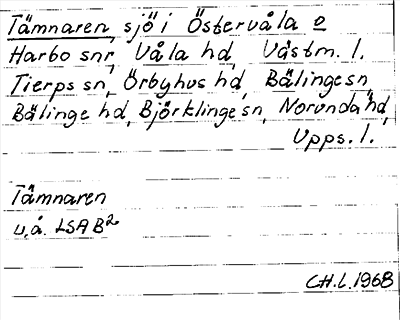 Tämnaren, sjö i Östervåla o
Harbo snr, Våla hd, Västm. l.
Tierps sn, Örbyhus hd, Bälinge sn
Bälinge hd, Björklinge sn, Norunda hd,
Upps. l.
Tämnaren
u.å. LSA B2
C.H.L. 1968